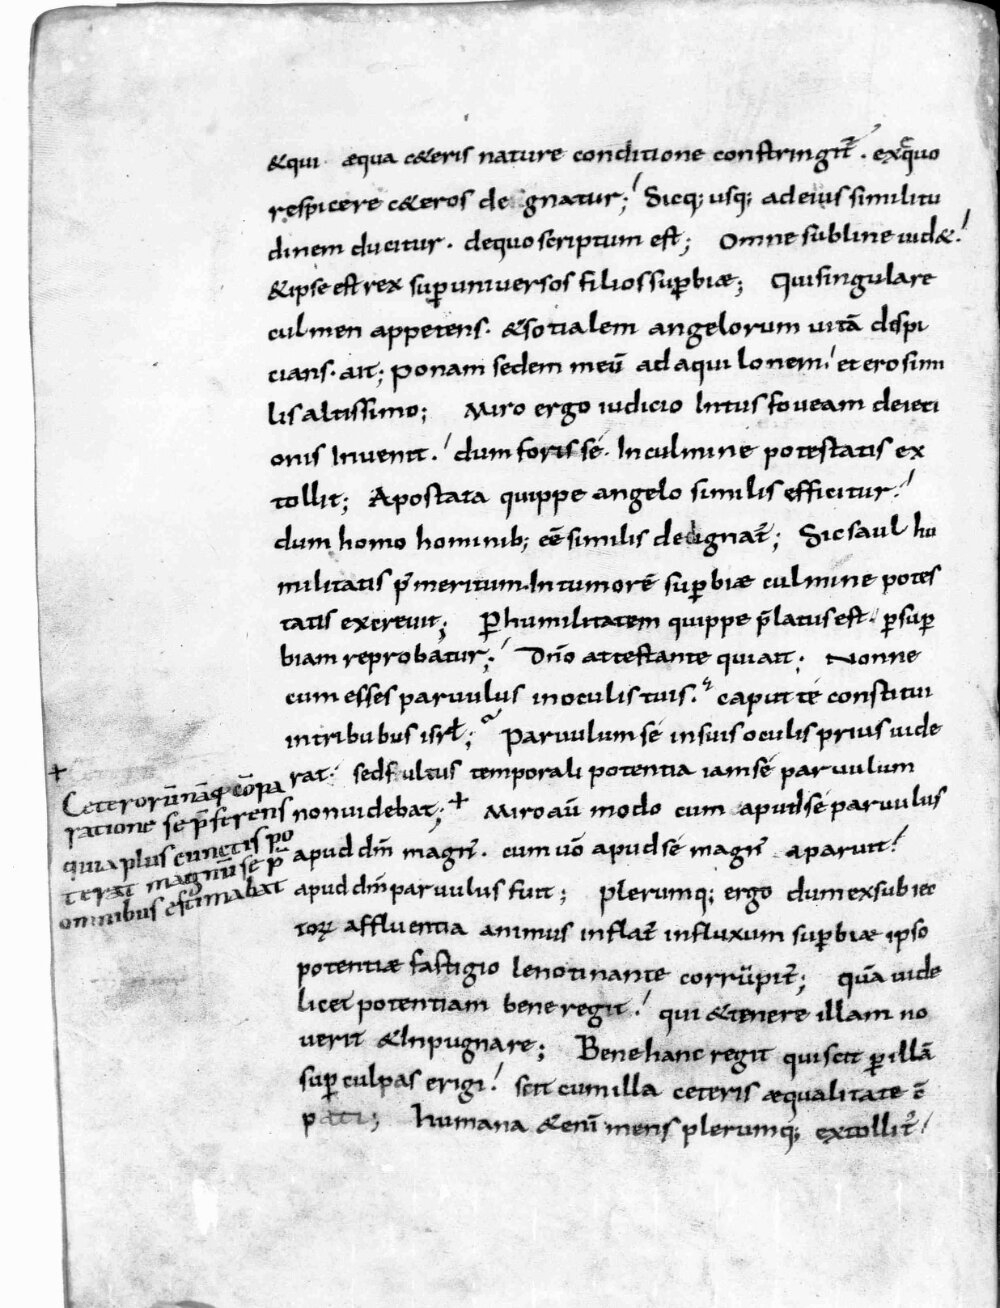 &qui æqua c&eris nature conditione constringit̄ . ex æquo
respicere c&eros dedignatur; Sicq; usq; ad eius similitu
dinem ducitur . de quo scriptum est; Omne subline uid&.
& ipse est rex sup̱ uniuersos filios sup̱biæ; Qui singulare
culmen appetens . & sotialem angelorum uitā dispi
cians . ait; ponam sedem meū ad aquilonem . et ero simi
lis altissimo; Miro ergo iudicio Intus foueam deiecti
onis Inuenit . dum foris se . In culmine potestatis ex
tollit; Apostata quippe angelo similis efficitur .
dum homo hominib; eē similis dedignat̄; Sic saul hu
militatis p̄ meritum . In tumorē sup̱biæ culmine potes
tatis excreuit; P̱ humilitatem quippe p̄latus est . p̱ sup̱
biam reprobatur; Dn̄o attestante qui ait; Nonne
cum esses paruulus in oculis tuis . caput te constitui
in tribubus isrł; Paruulum se in suis oculis prius uide
rat . sed fultus temporali potentia iam se paruulum
non uidebat; + Miro aū modo cum apud se paruulus
apud dm̄ magn᷒ . cum uō apud se magn᷒ aparuit .
apud dm̄ paruulus fuit; plerumq; ergo dum ex subiec
toꝝ affluentia animus inflat̄ in fluxum sup̱biæ ipso
potentiæ fastigio lenotinante corrūpit̄; quā uide
licet potentiam bene regit . qui & tenere illam no
uerit & Inpugnare; Bene hanc regit qui scit p̱ illā
sup̱ culpas erigi . scit cum illa ceteris æqualitate cō
pati; humana & enī mens plerumq; extollit̄ .
+
Ceterorū nāq; cōpa
ratione se p̄ferens
quia plus cunctis po
terat magnū se p̄
omnibus estimabat